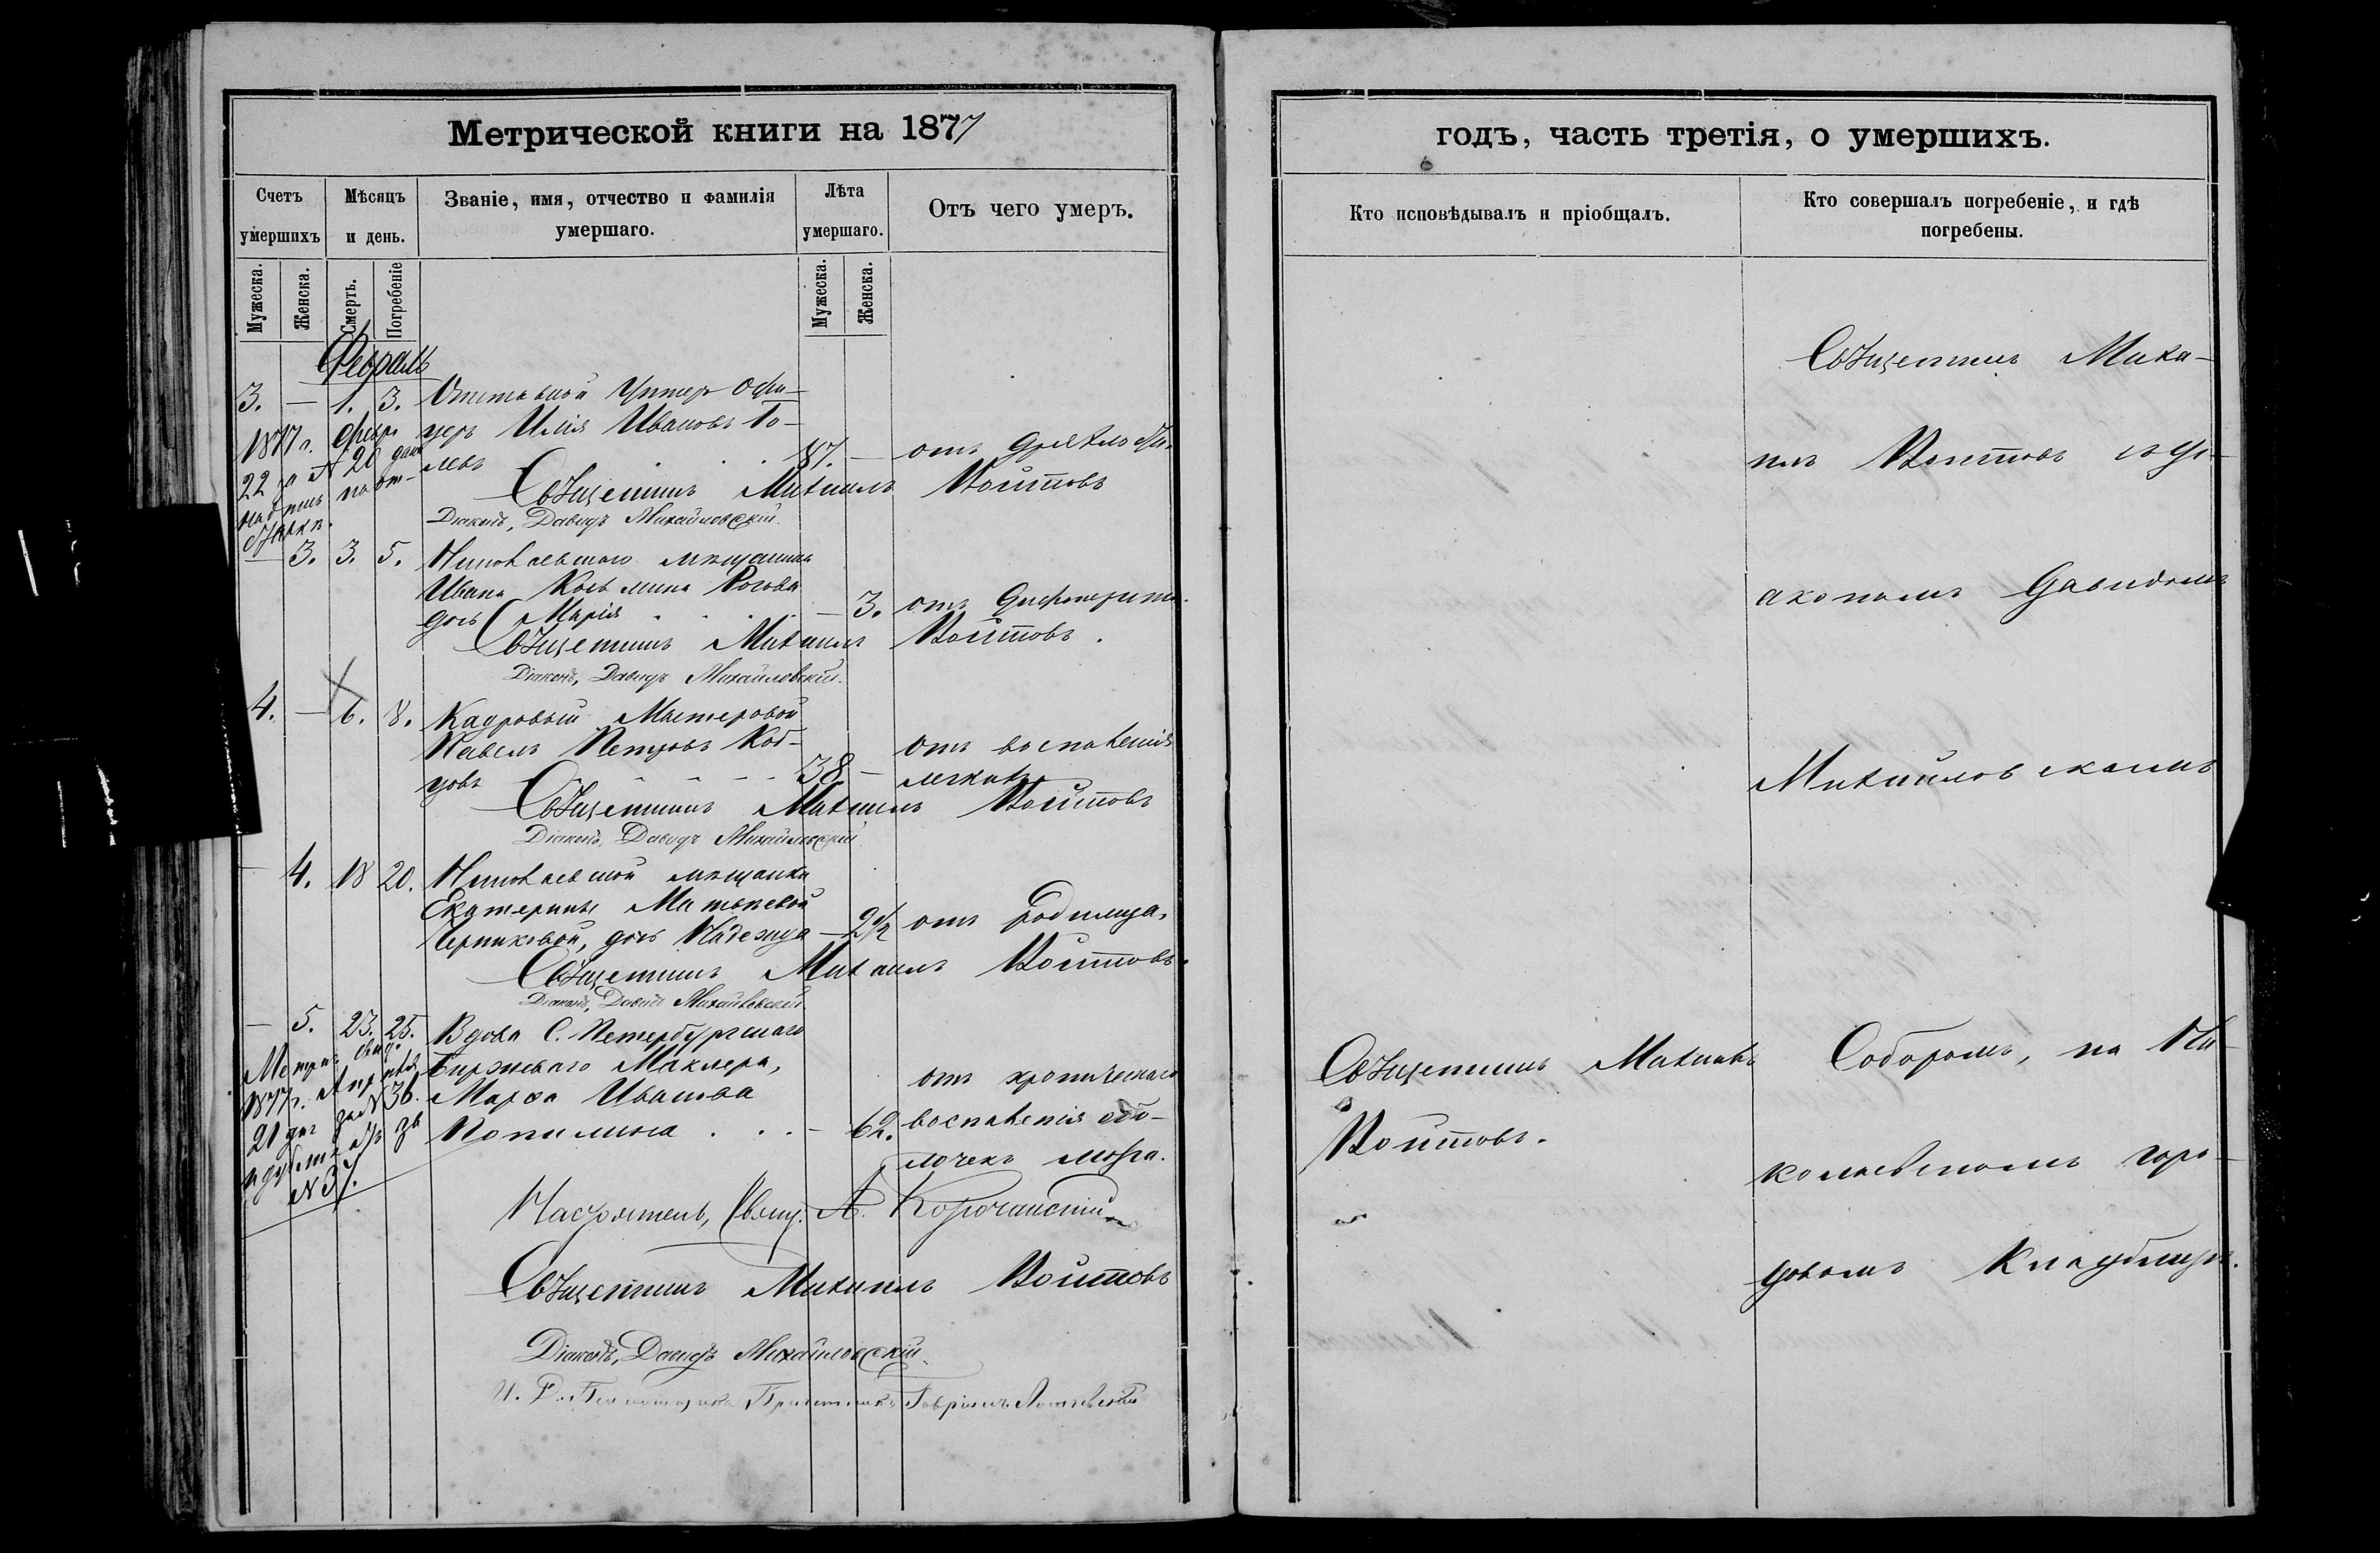 Метрической книги на 1877
годъ, часть третія, о умершихъ.
Счетъ умершихъ
Мѣсяцъ и день.
Званіе, имя, отчество и фамилія умершаго.
Лѣта умершаго.
Отъ чего умеръ.
Кто исповѣдывалъ и пріобщалъ.
Кто совершалъ погребеніе, и гдѣ погребены.
Мужеска.
Женска.
Смерть.
Погребеніе
Мужеска.
Женска.
Февраль
3. — 1. 3. Отставной Унтеръ Офи-
церъ Илія Ивановъ Го-
левъ . . . 87. — отъ дряхлости.
1877 г. Февр.
22 за № 20 дана
Священникъ Михаилъ Войтовъ
Діаконъ, Давидъ Михайловскій.
— 3. 3. 5. Николаевскаго мѣщанина
Ивана Косьмина Рогова
дочь Марія . . . — 3. отъ дифтерита.
Священникъ Михаилъ Войтовъ.
Діаконъ, Давидъ Михайловскій.
4. — 6. 8. Кадровый Мастеровой
Павелъ Петровъ Коб-
цовъ - - - 38. — отъ воспаленія
легкихъ
Священникъ Михаилъ Войтовъ
Діаконъ, Давидъ Михайловскій
— 4. 18 20. Николаевской мѣщанки
Екатерины Матвѣевой
Черниковой, дочь Надежда — 2½ отъ родимца.
Священникъ Михаилъ Войтовъ.
Діаконъ, Давидъ Михайловскій.
— 5. 23. 25. Вдова С. Петербургскаго
Биржеваго Маклера,
Марѳа Иванова
. . . — 62. отъ хроническаго
воспаленія обо-
лочекъ мозга.
Метрич. свид.
1877 г. Апрѣля
21 дня за № 36.
№ 37.
Настоятель, Свящ. А. Корочанскій
Священникъ Михаилъ Войтовъ
Діаконъ, Давидъ Михайловскій.
Священникъ Миха-
илъ Войтовъ съ ді-
акономъ Давидомъ
Михайловскимъ
Священникъ Михаилъ
Войтовъ.
Соборомъ, на Ни-
колаевскомъ горо-
довомъ кладбищѣ.